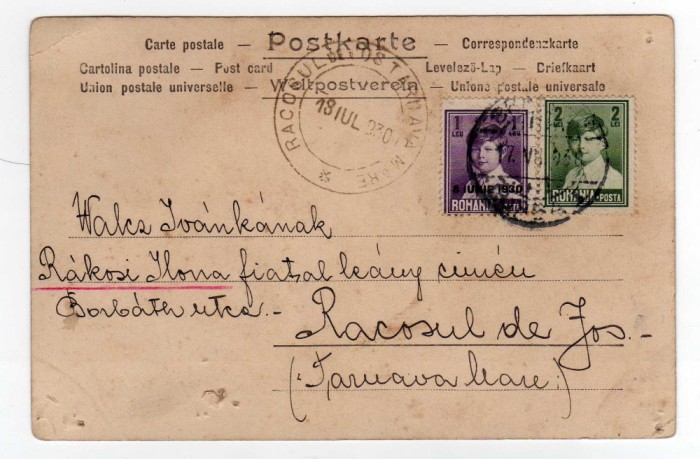 Carte postale — Postkarte — Correspondenzkarte
Cartolina postale — Post card Levelező-Lap — Briefkaart
Union postale universelle — Weltpostverein — Unione postale universale
RACOSUL DE JOS TARNAVA MARE
18 IUL 930
1 LEU 1 LEU
8 IUNIE 1930
ROMANIA
2 LEI 2 LEI
ROMANIA POSTA
Walcz Ivánkának
Rákosi Ilona fiatal leány címén
Borbáth utca. —
Racosul de Jos. —
(Tarnava Mare.)